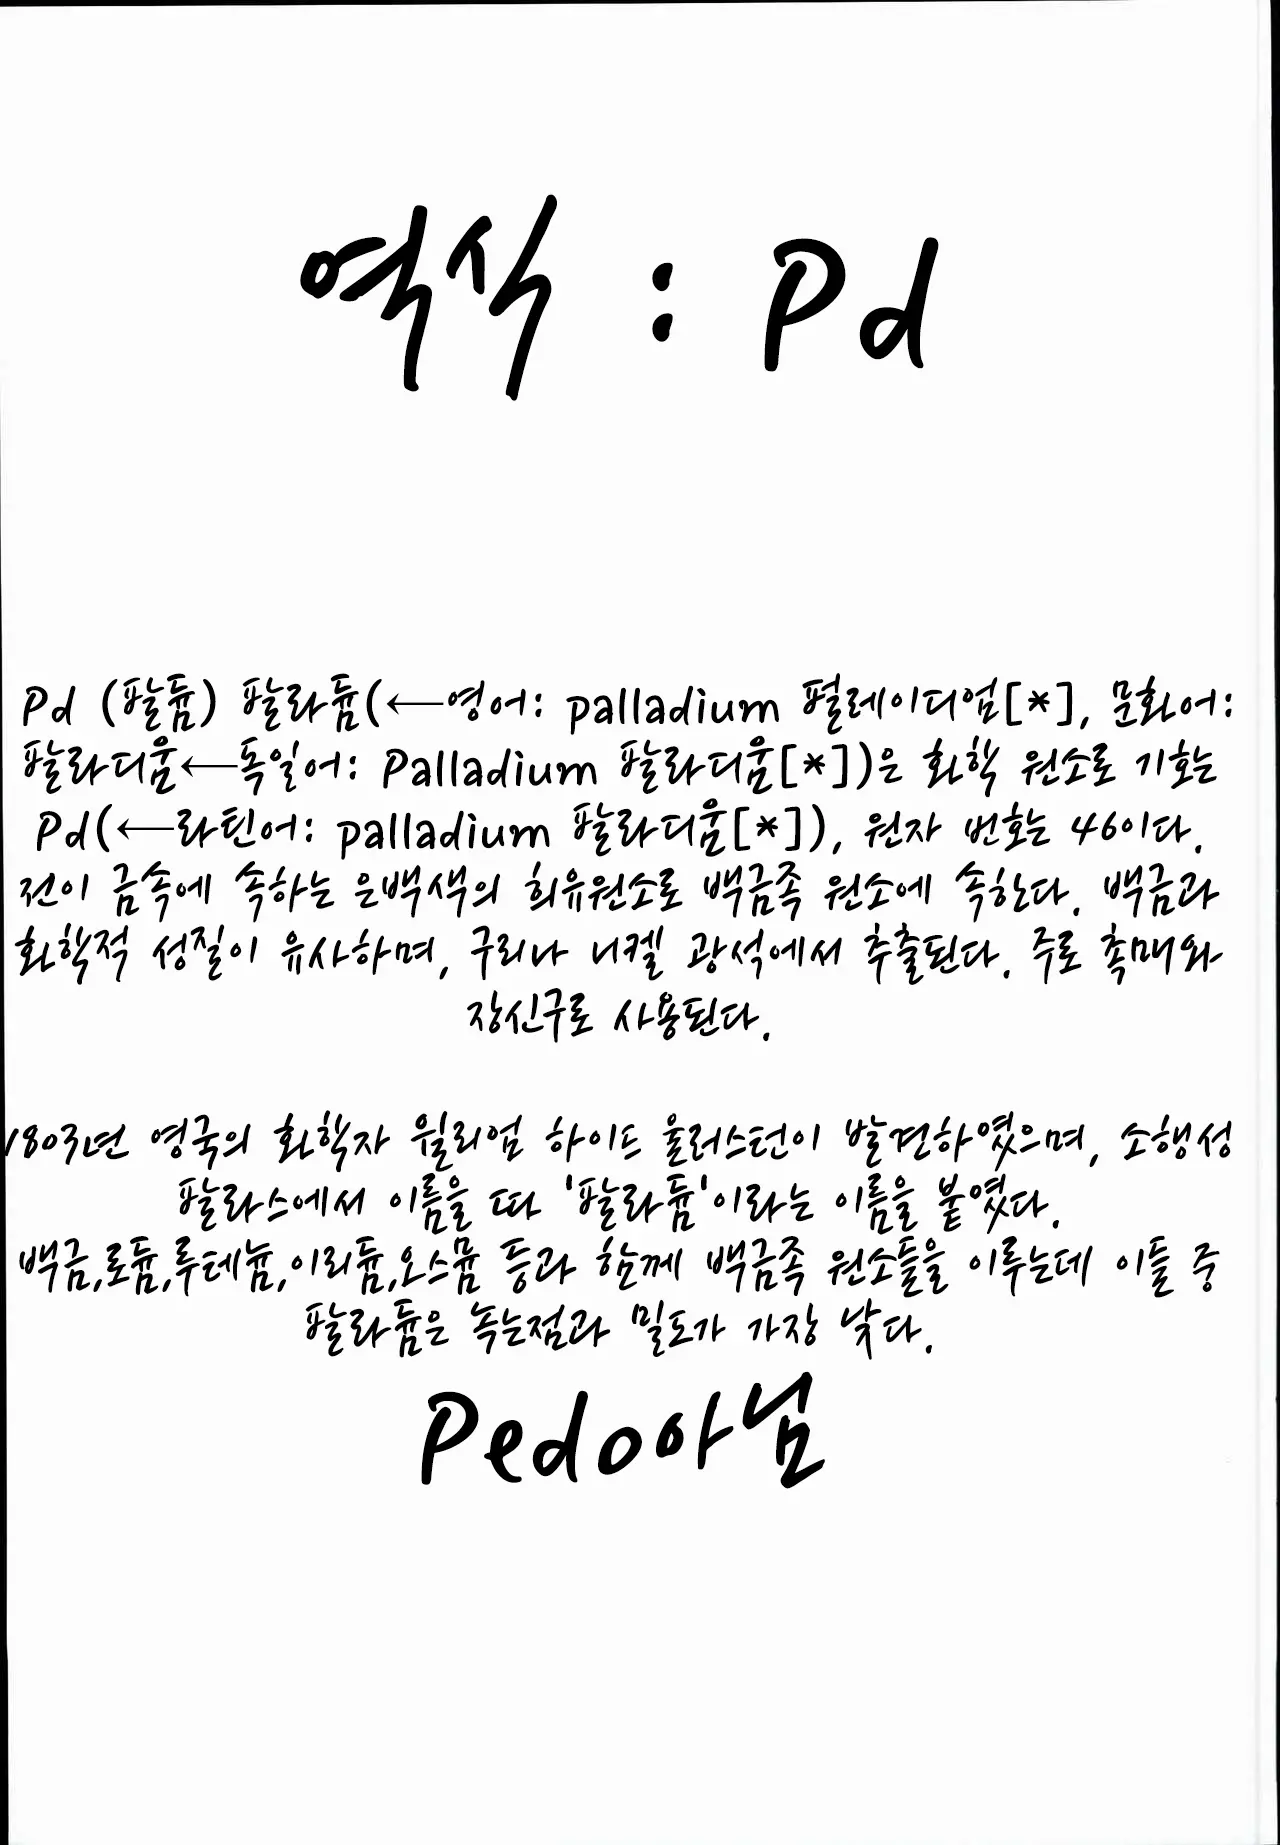 역식 : Pd
Pd (팔듐) 팔라듐(←영어: palladium 펄레이디엄[*], 문화어:
팔라디움←독일어: Palladium 팔라디움[*])은 화학 원소로 기호는
Pd(←라틴어: palladium 팔라디움[*]), 원자 번호는 46이다.
전이 금속에 속하는 은백색의 희유원소로 백금족 원소에 속한다. 백금과
화학적 성질이 유사하며, 구리나 니켈 광석에서 추출된다. 주로 촉매와
장신구로 사용된다.
1803년 영국의 화학자 윌리엄 하이드 울러스턴이 발견하였으며, 소행성
팔라스에서 이름을 따 '팔라듐'이라는 이름을 붙였다.
백금,로듐,루테늄,이리듐,오스뮴 등과 함께 백금족 원소들을 이루는데 이들 중
팔라듐은 녹는점과 밀도가 가장 낮다.
Pedo아님